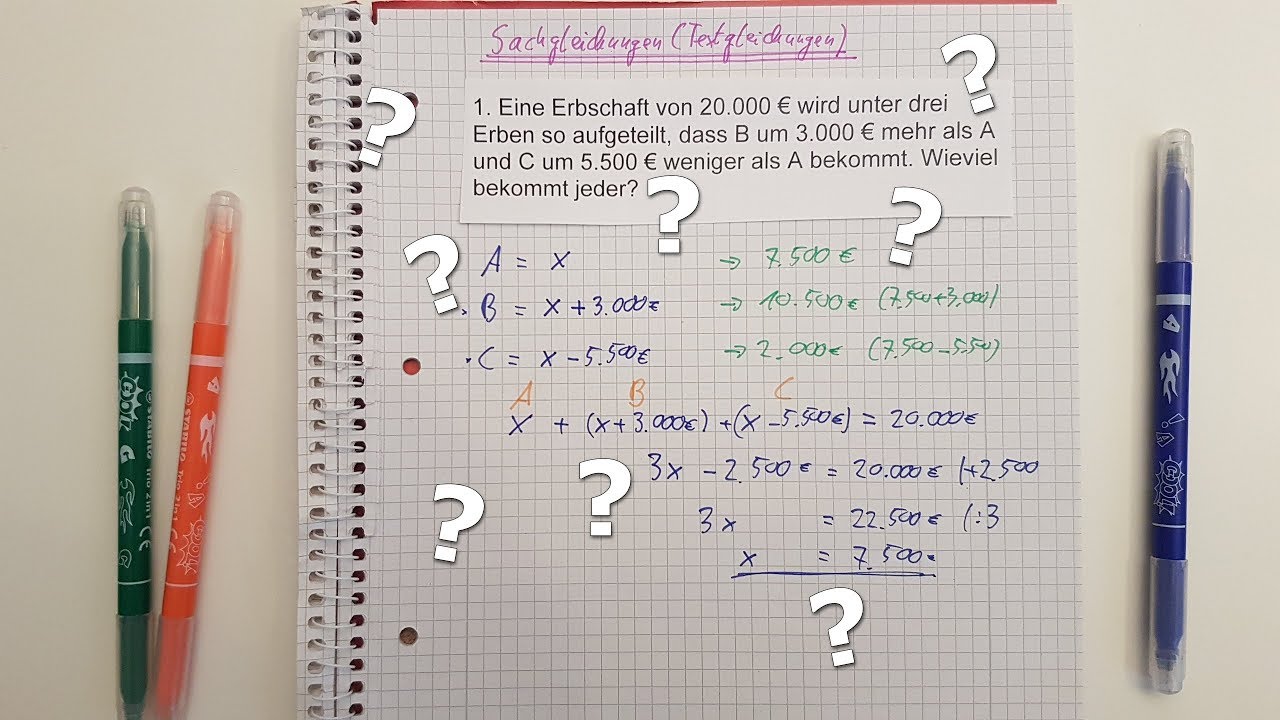 Sachgleichungen (Textgleichungen)
1. Eine Erbschaft von 20.000 € wird unter drei
Erben so aufgeteilt, dass B um 3.000 € mehr als A
und C um 5.500 € weniger als A bekommt. Wieviel
bekommt jeder?
A = x → 7.500 €
B = x + 3.000€ → 10.500€ (7.500+3.000)
C = x - 5.500€ → 2.000€ (7.500-5.500)
A B C
x + (x+3.000€) + (x-5.500€) = 20.000€
3x - 2.500€ = 20.000€ |+2.500
3x = 22.500€ |:3
x = 7.500€